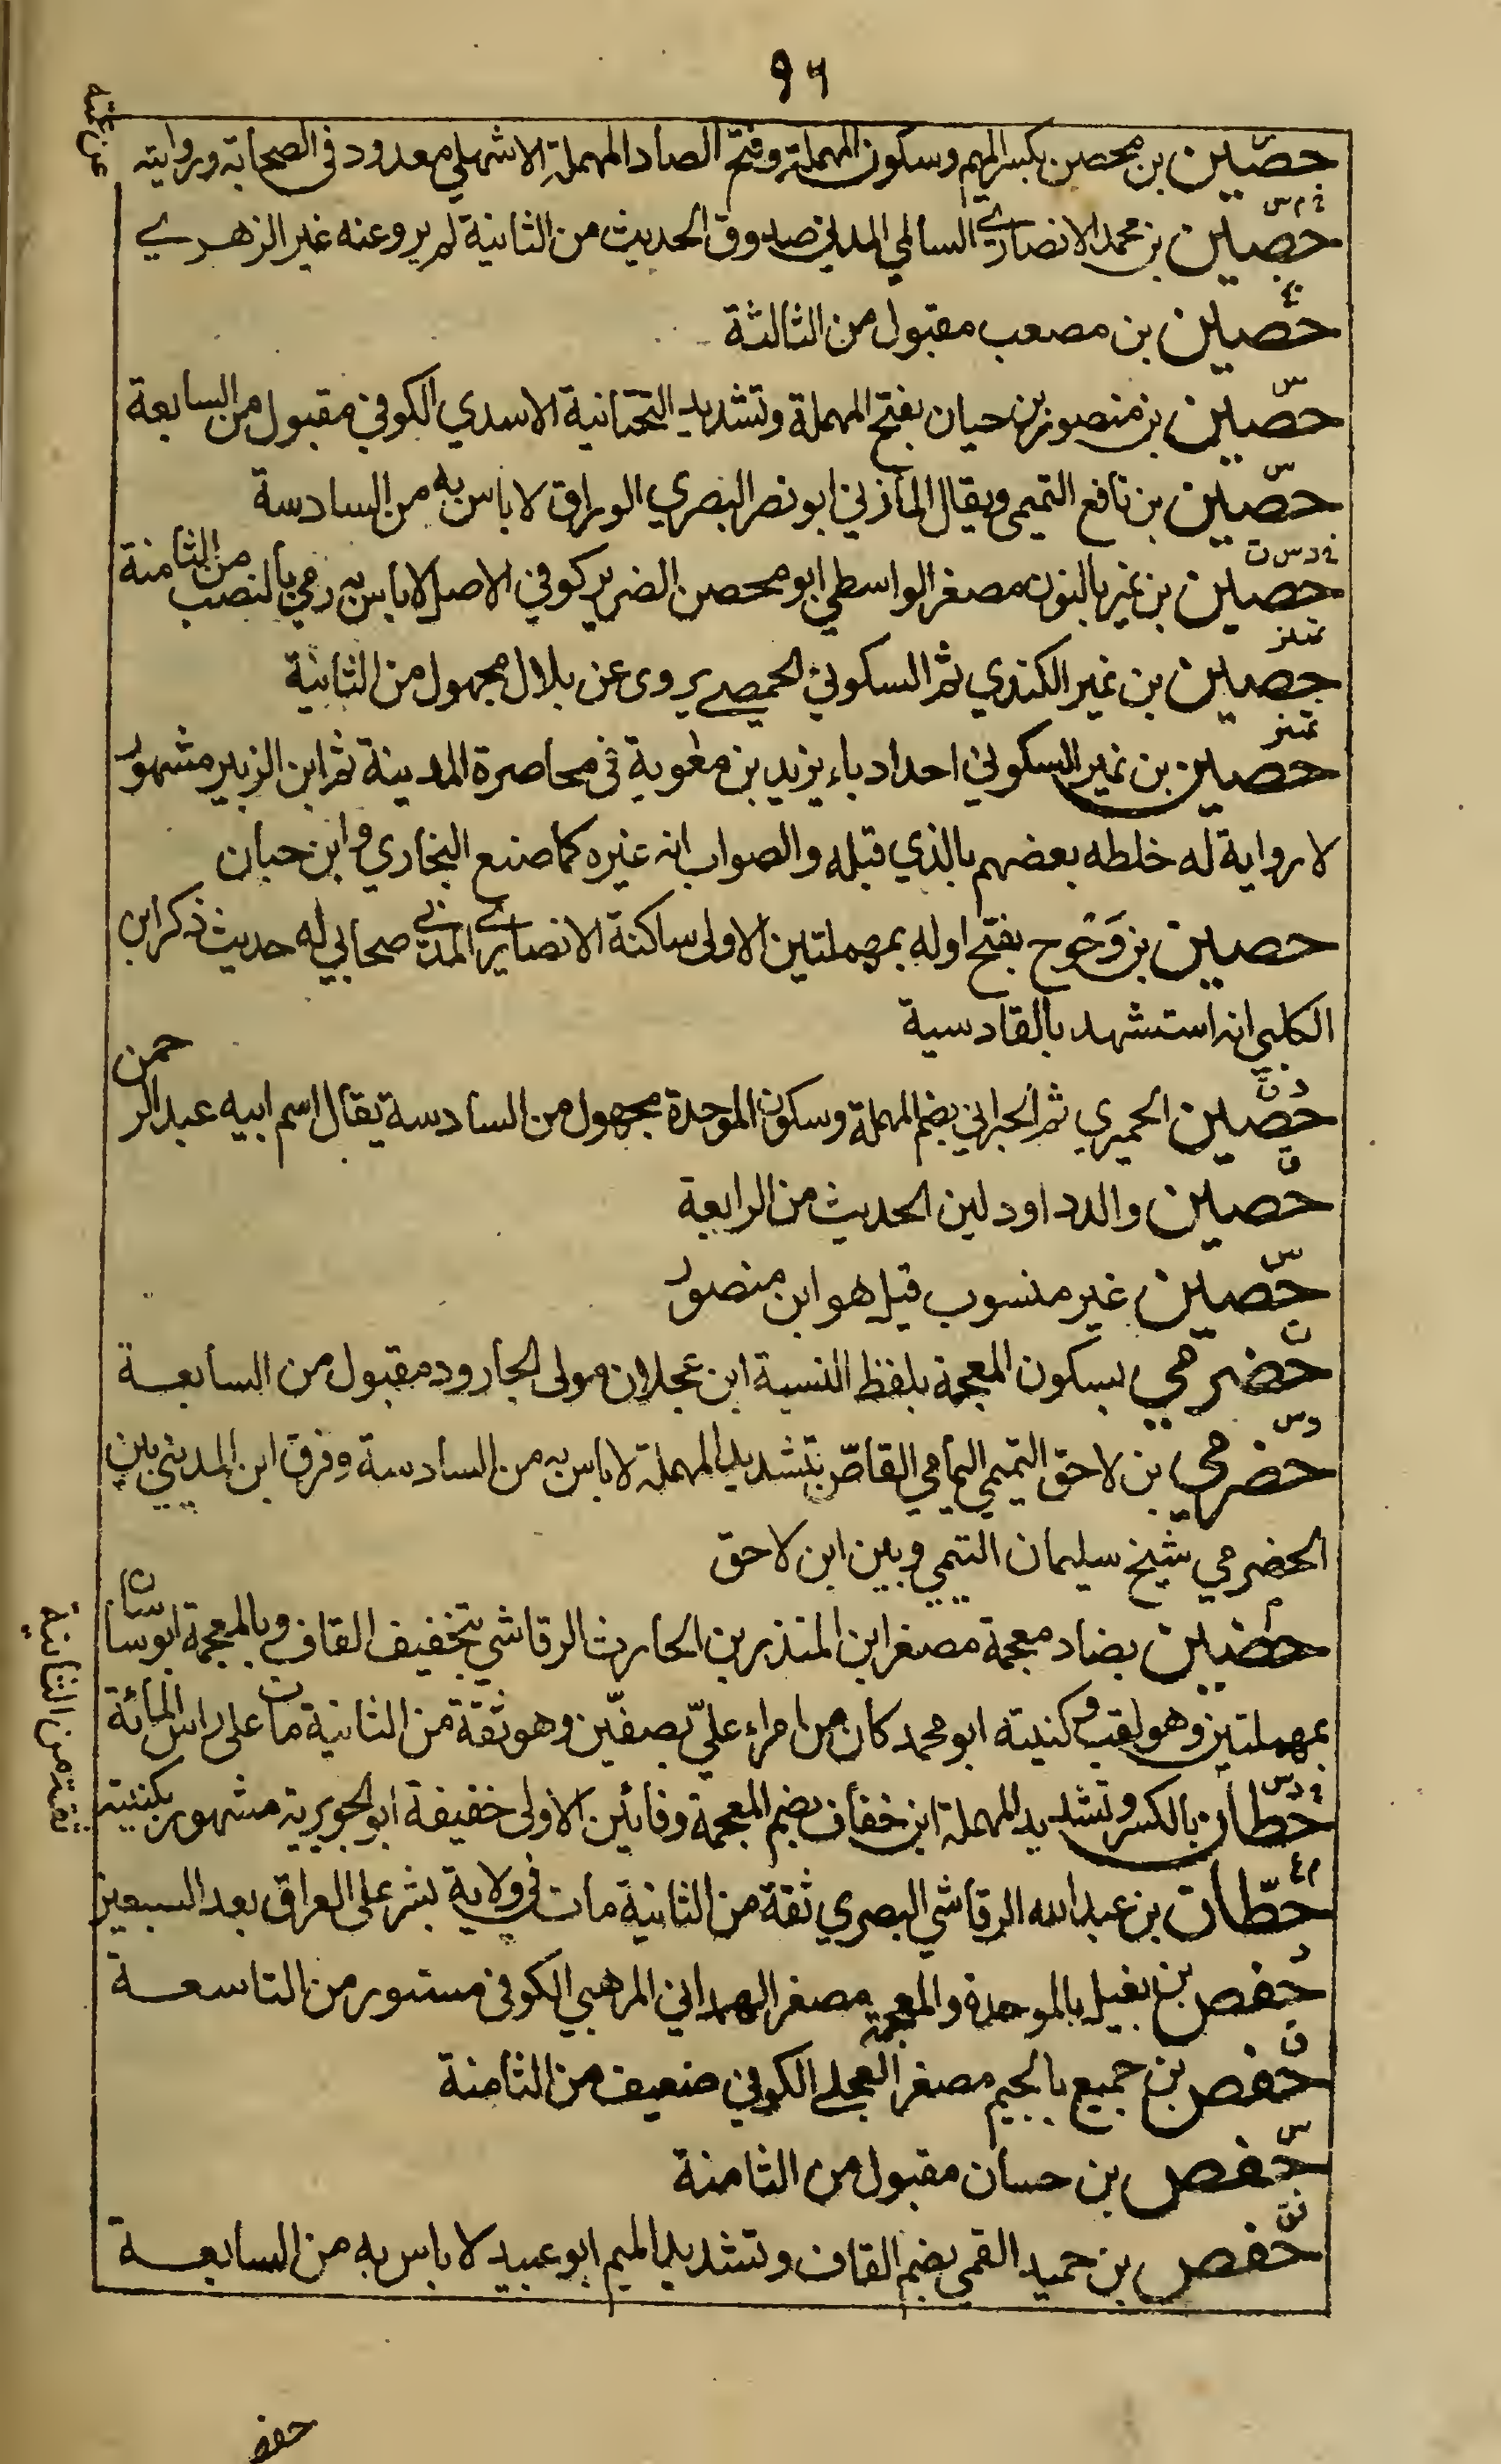 ٩٦
حصين بن محصن بكسر الميم وسكون المهملة وفتح الصاد المهملة الاشهلي معدود في الصحابة وروايته
عن عمته
خ م س
حصين بن محمد الانصاري السالمي المدني صدوق الحديث من الثانية لم يرو عنه غير الزهري
حصين بن مصعب مقبول من الثالثة
س
حصين بن منصور بن حيان بفتح المهملة وتشديد التحتانية الاسدي الكوفي مقبول من السابعة
س
حصين بن نافع التميمي ويقال المازني ابو نصر البصري الوراق لا باس به من السادسة
خ د س ت
حصين بن نمير بالنون مصغر الواسطي ابو محصن الضرير كوفي الاصل لا باس به رمي بالنصب من الثامنة
تمييز
حصين بن نمير الكندي ثم السكوني الحمصي يروى عن بلال مجهول من الثانية
تمييز
حصين بن نمير السكوني احد ادباء يزيد بن معوية في محاصرة المدينة ثم ابن الزبير مشهور
لا رواية له خلطه بعضهم بالذي قبله والصواب انه غيره كما صنع البخاري وابن حبان
حصين بن وَحْوح بفتح اوله بمهملتين الاولى ساكنة الانصاري المدني صحابي له حديث ذكر ابن
الكلبي انه استشهد بالقادسية
د ق
حصين الحميري ثم الحبراني بضم المهملة وسكون الموحدة مجهول من السادسة يقال اسم ابيه عبد الرحمن
ق
حصين والد داود لين الحديث من الرابعة
س
حصين غير منسوب قيل هو ابن منصور
ت
حضرمي بسكون المعجمة بلفظ النسبة ابن عجلان مولى الجارود مقبول من السابعة
د س
حضرمي بن لاحق التميمي اليمامي القاصّ بتشديد المهملة لا باس به من السادسة وفرق ابن المديني بين
الحضرمي شيخ سليمان التيمي وبين ابن لاحق
م
حضين بضاد معجمة مصغر ابن المنذر بن الحارث الرقاشي بتخفيف القاف وبالمعجمة ابو ساسان
بمهملتين وهو لقب وكنيته ابو محمد كان من امراء عليّ بصفّين وهو ثقة من الثانية مات على راس المائة
خ د س
حطان بالكسر وتشديد المهملة ابن خفاف بضم المعجمة وفائين الاولى خفيفة ابو الجويرية مشهور بكنيته
ثقة من الثانية
م ٤
حطّان بن عبد الله الرقاشي البصري ثقة من الثانية مات في ولاية بشر على العراق بعد السبعين
د
حفص بن بغيل بالموحدة والمعجمة مصغر الهمداني المرهبي الكوفي مستور من التاسعة
ق
حفص بن جميع بالجيم مصغر العجلي الكوفي ضعيف من الثامنة
س
حفص بن حسان مقبول من الثامنة
حفص بن حميد القمي بضم القاف وتشديد الميم ابو عبيد لا باس به من السابعة
حفص